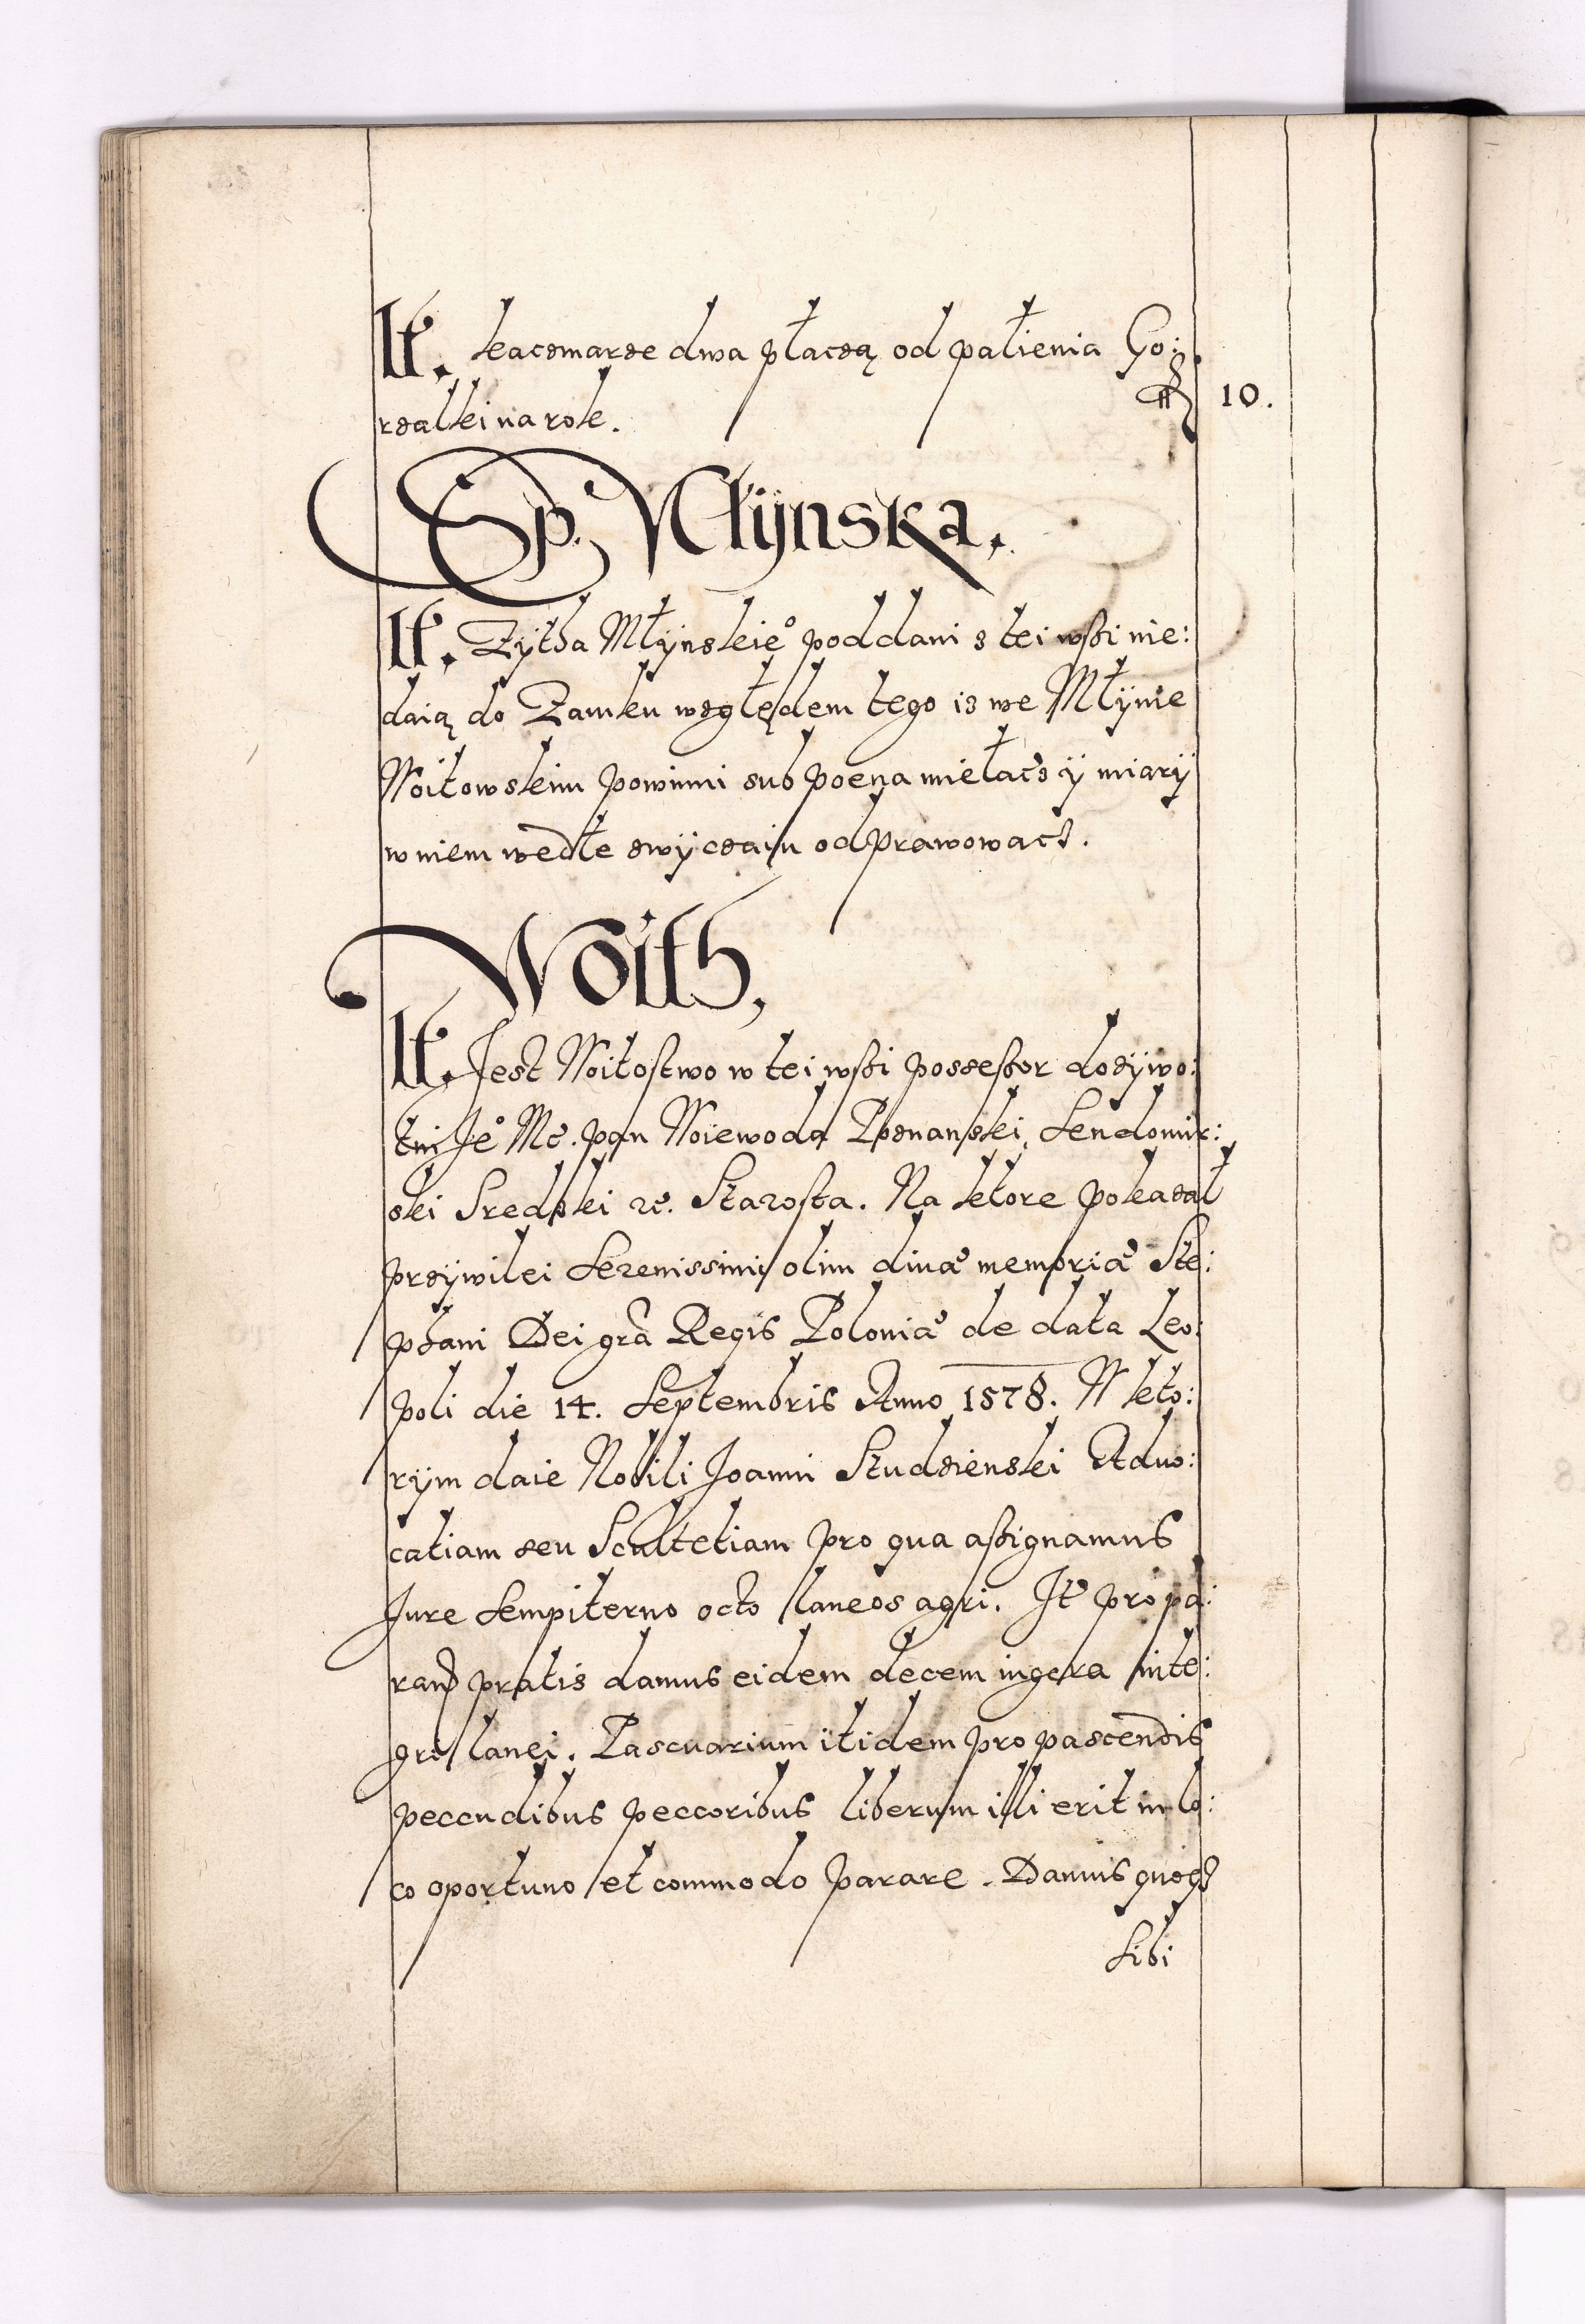 It. kaczmarze dwa płaczą od palienia Go:
rzalkei na rok. fl 10.
Sp. Młÿnska.
It. Zÿtha Młÿnskie° poddani z tei wßi nie:
daią do Zamku względem tego iz we Młÿnie
Woitowskim powinni sub poena miełacz ÿ miarÿ
w niem wedle zwÿczaiu odprawowacz.
Woith,
It. Jest Woitostwo w tei wßi posseßor dozÿwo:
tni Je° Mć. pan Woiewoda Poznanski, Sendomir:
ski Sredski etc. Starosta. Na ktore pokazał
przÿwilei Serenissimi olim divæ memoriæ Ste:
phani Dei gra Regis Poloniæ de data Leo:
poli die 14. Septembris Anno 1578. W kto:
rÿm daie Nobili Joanni Studzienski Advo:
catiam seu Scultetiam pro qua aßignamus
Jure Sempiterno octo laneos agri. It pro pa:
rand pratis damus eidem decem iugera inte:
gri lanei. Pascuarium itidem pro pascendis
peccudibus peccoribus liberum illi erit in lo:
co oportuno et commodo parare. Damus quoq3
Sibi